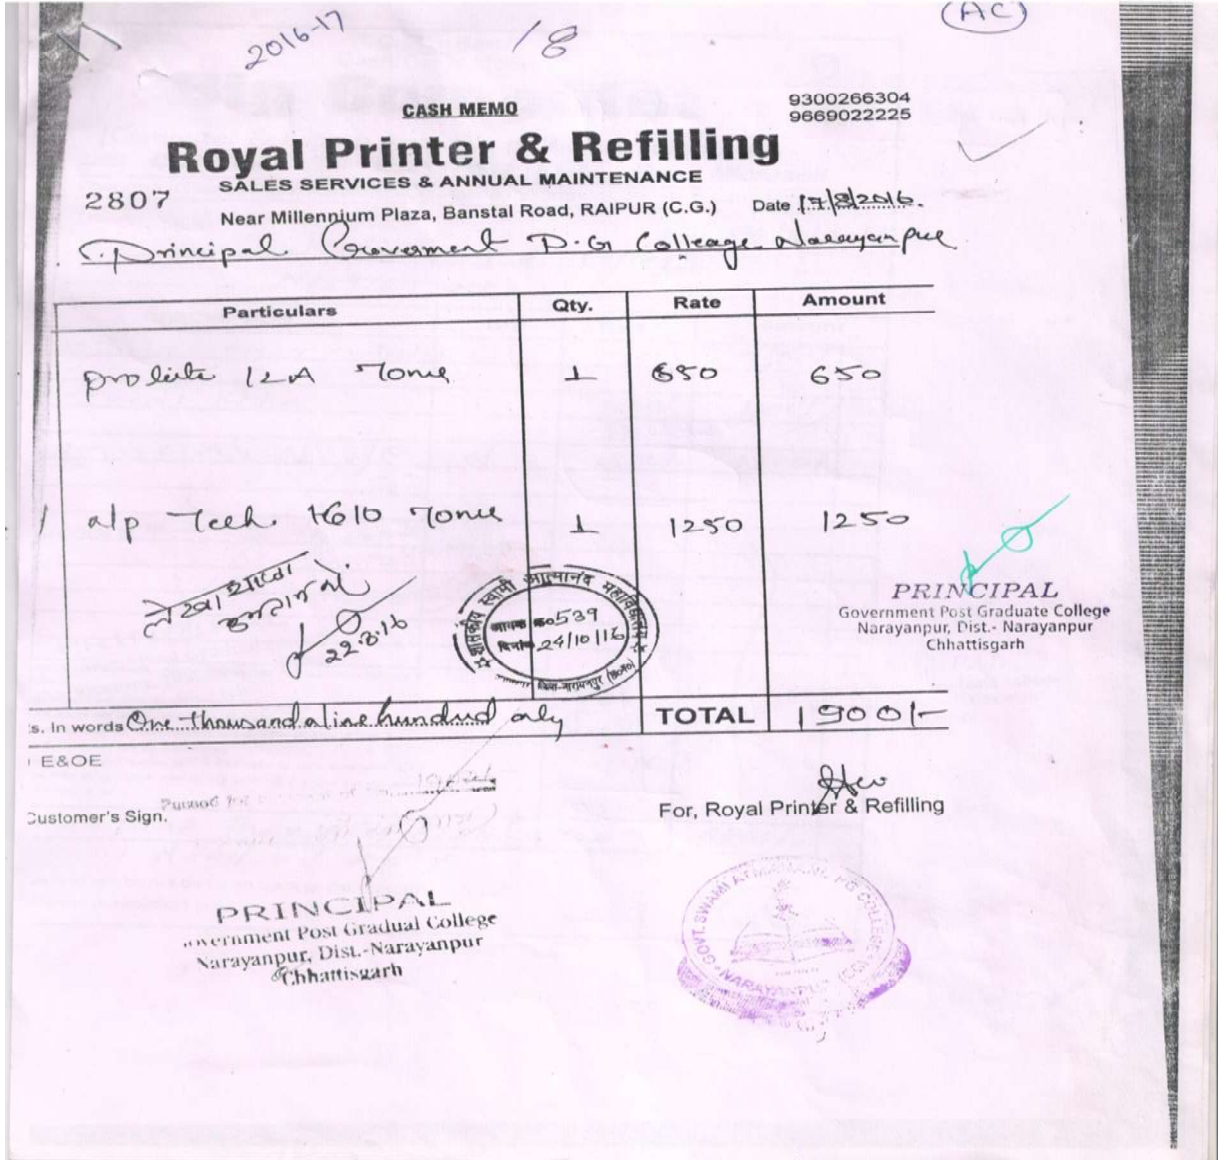 2016-17
18
(AC)
CASH MEMO
9300266304
9669022225
Royal Printer & Refilling
SALES SERVICES & ANNUAL MAINTENANCE
2807
Near Millennium Plaza, Banstal Road, RAIPUR (C.G.) Date 17/8/2016.
Principal Goverment P.G Colleage Narayanpur
Particulars Qty. Rate Amount
prolite 12A Toner 1 650 650
a/p Tech 1610 Toner 1 1250 1250
22.8.16
शासकीय स्वामी आत्मानंद महाविद्यालय
आवक क्र 0539
दिनांक 24/10/16
जिला-नारायणपुर (छ0ग0)
PRINCIPAL
Government Post Graduate College
Narayanpur, Dist.- Narayanpur
Chhattisgarh
s. In words One thousand nine hundred only TOTAL 1900/-
E&OE
Customer's Sign.
For, Royal Printer & Refilling
PRINCIPAL
overnment Post Gradual College
Narayanpur, Dist.-Narayanpur
Chhattisgarh
GOVT. SWAMI ATMANAND P.G. COLLEGE
NARAYANPUR